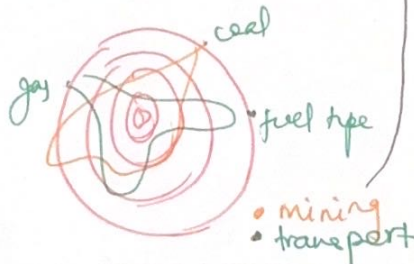 coal
gas
fuel type
mining
transport